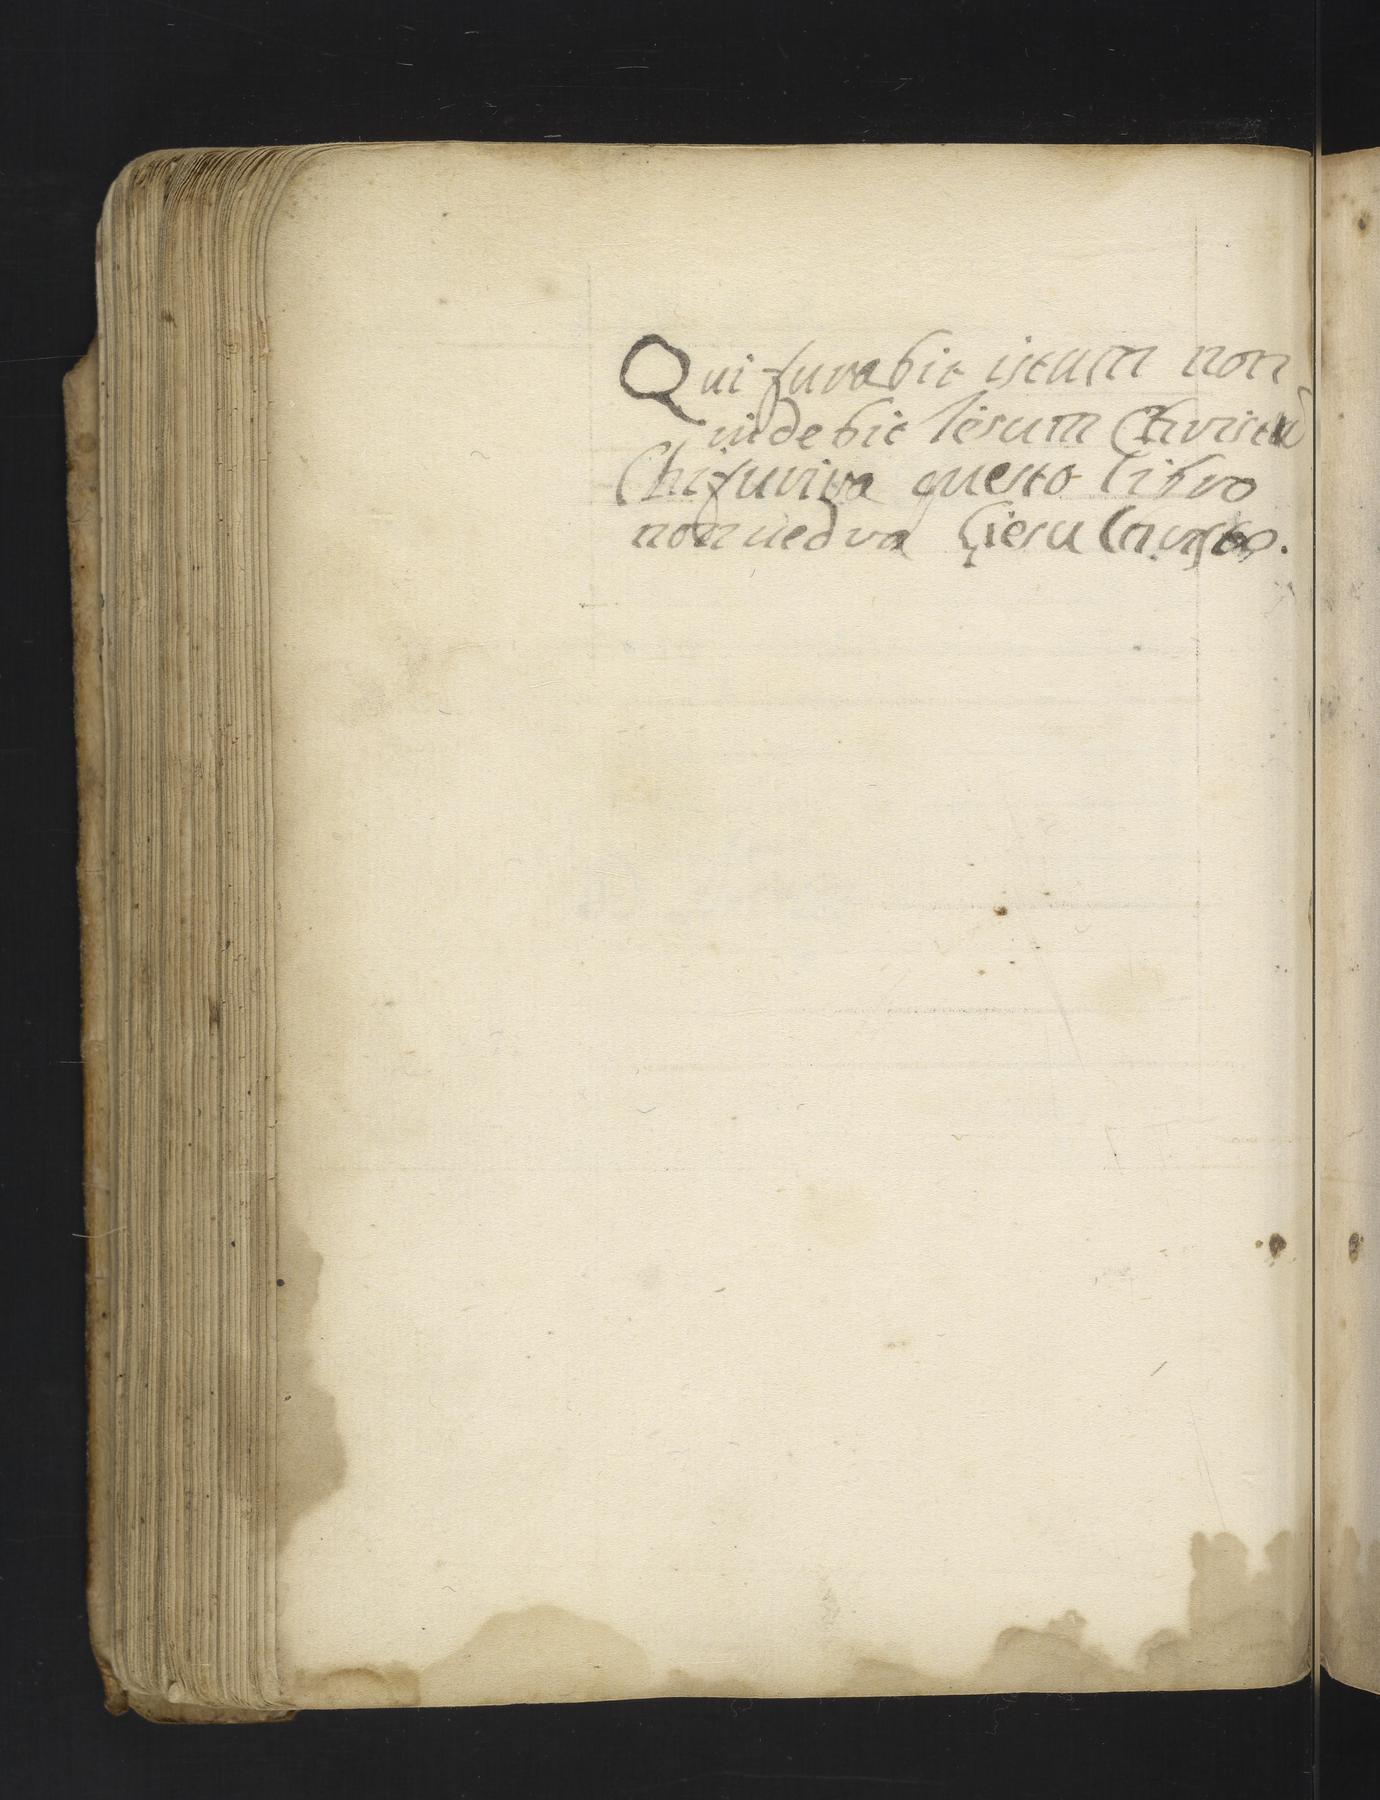 Qui furabit istum non
uidebit Iesum Christū
Chi furira questo libro
non uedra Giesu Christo.